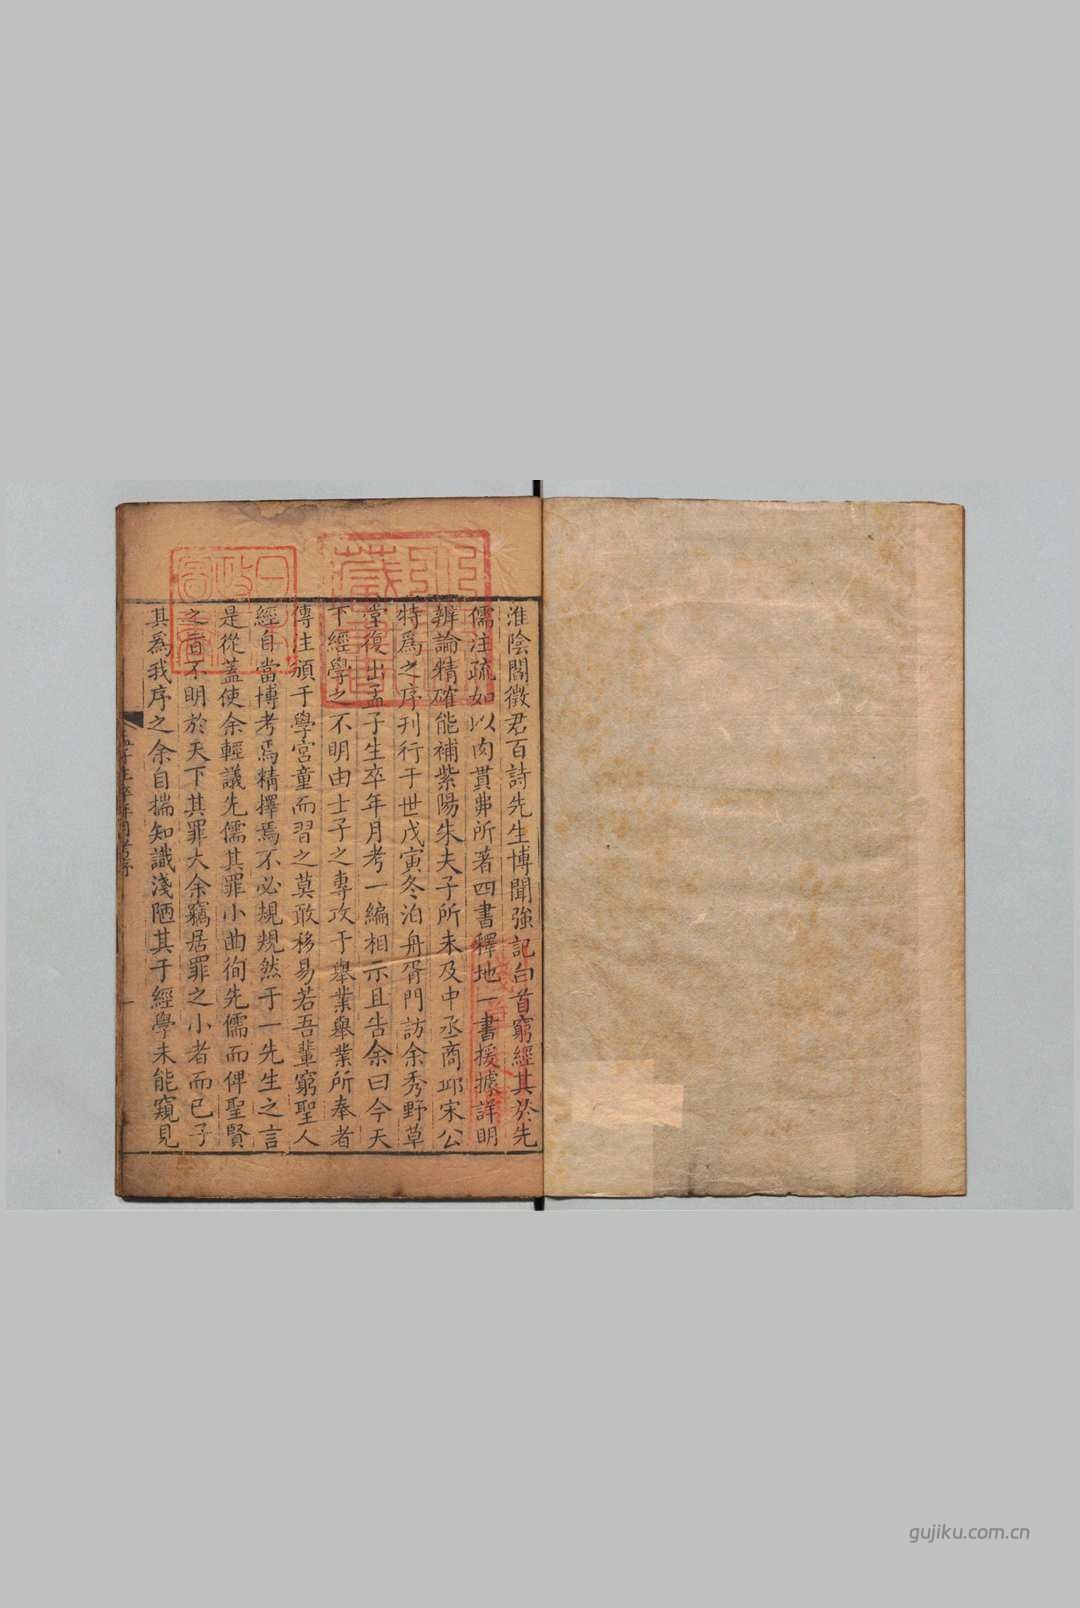 淮陰閻徵君百詩先生博聞強記白首窮經其於先
儒注疏如以肉貫弗所著四書釋地一書援據詳明
辨論精確能補紫陽朱夫子所未及中丞商邱宋公
特爲之序刊行于世戊寅冬泊舟胥門訪余秀野草
堂復出孟子生卒年月考一編相示且告余曰今天
下經學之不明由士子之專攻于舉業舉業所奉者
傳注頒于學宮童而習之莫敢移易若吾輩窮聖人
經自當博考焉精擇焉不必規規然于一先生之言
是從蓋使余輕議先儒其罪小曲徇先儒而俾聖賢
之旨不明於天下其罪大余竊居罪之小者而已子
其爲我序之余自揣知識淺陋其于經學未能窺見
孟子生卒年月考序
一
gujiku.com.cn